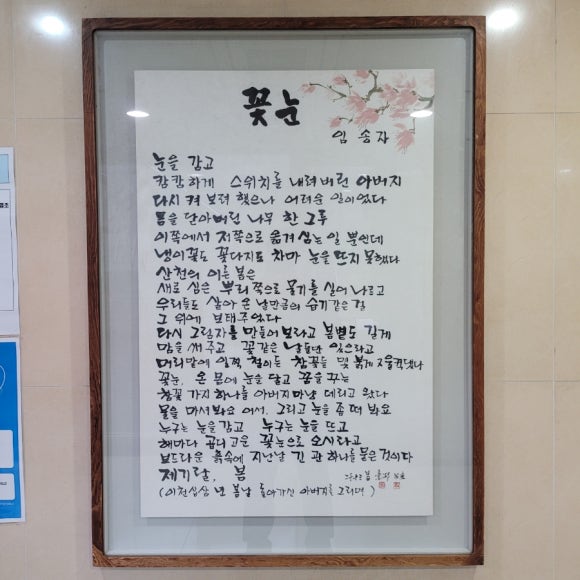 꽃눈
임 송 자
눈을 감고
캄캄하게 스위치를 내려버린 아버지
다시 켜 보려 했으나 어려운 일이었다
몸을 닫아버린 나무 한 그루
이쪽에서 저쪽으로 옮겨 심는 일 뿐인데
냉이꽃도 꽃다지도 차마 눈을 뜨지 못했다
산천의 이른 봄은
새로 심은 뿌리 쪽으로 물기를 실어 나르고
우리들도 살아 온 날만큼의 습기 같은 걸
그 위에 보태주었다
다시 그림자를 만들어 보라고 봄볕도 길게
맘을 써주고 꽃같은 날들만 있으라고
머리맡에 일찍 철이든 참꽃들 몇 붉게
꽃눈, 온 몸에 눈을 달고 꿈을 꾸는
참꽃 가지 하나를 아버지 마냥 데리고 왔다
물을 마셔봐요 어서, 그리고 눈을 좀 떠 봐요
누구는 눈을 감고 누구는 눈을 뜨고
해마다 곱디고운 꽃눈으로 오시라고
보드라운 흙속에 지난날 긴 관 하나를 묻은 것이다
제기랄, 봄
(이천십삼 년 봄날 돌아가신 아버지를 그리며)